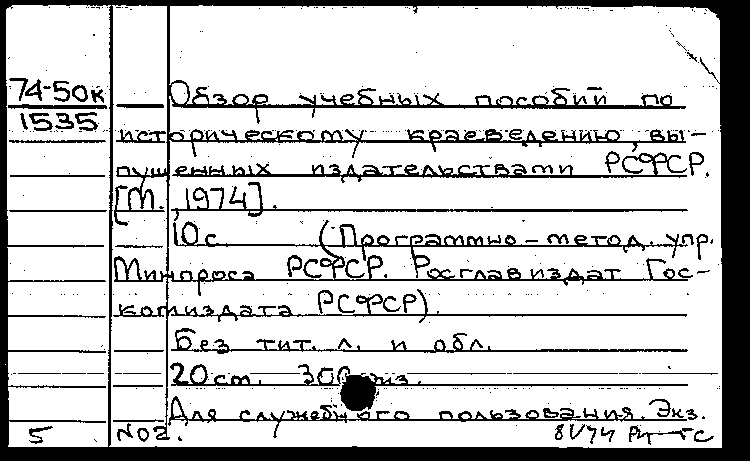 74-50к
1535
Обзор учебных пособий по
историческому краеведению, вы-
пущенных издательствами РСФСР.
[М., 1974].
10 с (Программно-метод. упр.
Минпроса РСФСР. Росглавиздат Гос-
комиздата РСФСР).
Без тит. л. и обл.
20 см. 300 экз.
Для служебного пользования. Экз.
5 №02.